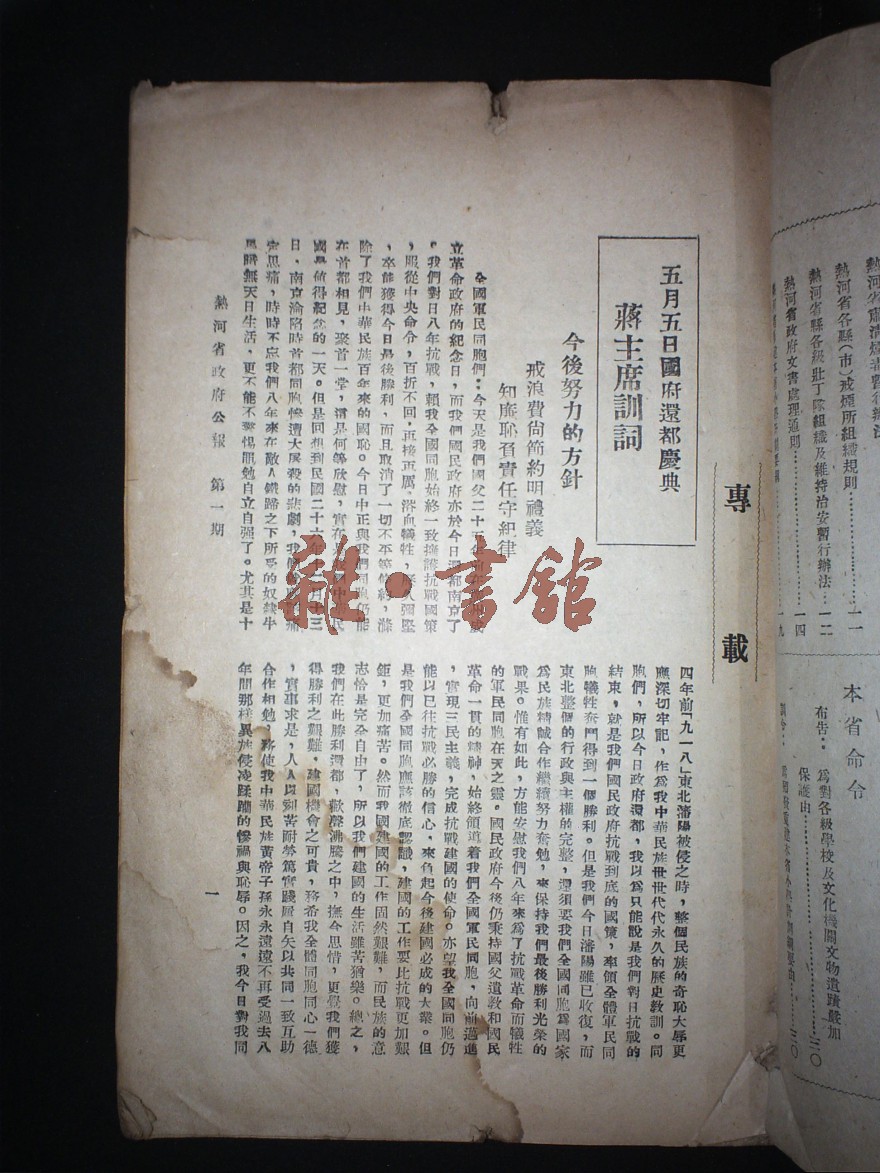 專載
五月五日國府還都慶典
蔣主席訓詞
今後努力的方針
戒浪費尚節約明禮義
知廉恥召責任守紀律
全國軍民同胞們：今天是我們國父二十五
立革命政府的紀念日，而我們國民政府亦於今日還都南京了
。我們對日八年抗戰，賴我全國同胞始終一致擁護抗戰國策
，服從中央命令，百折不回，再接再厲，浴血犧牲，彌堅
，卒能獲得今日最後勝利，而且取消了一切不平等條約，滌
除了我們中華民族百年來的國恥。今日中正與我們同胞仍能
在首都相見，聚首一堂，這是何等欣慰，實在
國最值得紀念的一天。但是回想到民國二十六年
日，南京淪陷時首都同胞慘遭大屠殺的悲劇，我們
定思痛，時時不忘我們八年來在敵人鐵蹄之下所受的奴隸牛
馬暗無天日生活，更不能不警惕黽勉自立自强了。尤其是十
四年前「九一八」東北瀋陽被侵之時，整個民族的奇恥大辱更
應深切牢記，作爲我中華民族世世代代永久的歷史教訓。同
胞們，所以今日政府還都，我以爲只能說是我們對日抗戰的
結束，就是我們國民政府抗戰到底的國策，率領全體軍民同
胞犧牲奮鬥得到一個勝利。但是我們今日瀋陽雖已收復，而
東北整個的行政與主權的完整，還須要我們全國同胞爲國家
爲民族精誠合作繼續努力奮勉，來保持我們最後勝利光榮的
戰果。惟有如此，方能安慰我們八年來爲了抗戰革命而犧牲
的軍民同胞在天之靈。國民政府今後仍秉持國父遺教和國民
革命一貫的精神，始終領道着我們全國軍民同胞，向前邁進
，實現三民主義，完成抗戰建國的使命。亦望我全國同胞仍
能以已往抗戰必勝的信心，來負起今後建國必成的大業。但
是我們全國同胞應該徹底認識，建國的工作要比抗戰更加艱
鉅，更加痛苦。然而我國建國的工作固然艱難，而民族的意
志恰是完全自由了，所以我們建國的生活雖苦猶樂。總之，
我們在此勝利還都，歡聲沸騰之中，撫今思惜，更覺我們獲
得勝利之艱難，建國機會之可貴，務希我全體同胞同心一德
，實事求是，人人以刻苦耐勞篤實踐履自矢以共同一致互助
合作相勉，務使我中華民族黃帝子孫永永遠遠不再受過去八
年間那樣異族侵凌蹂躪的慘禍與恥辱。因之，我今日對我同
熱河省政府公報　第一期
一
雜·書館
熱河省各縣（市）戒煙所組織規則……一一
熱河省縣各級壯丁隊組織及維持治安暫行辦法…一二
熱河省政府文書處理通則……一四
本省命令
布告：爲對各級學校及文化機關文物遺蹟嚴加
保護由……三〇